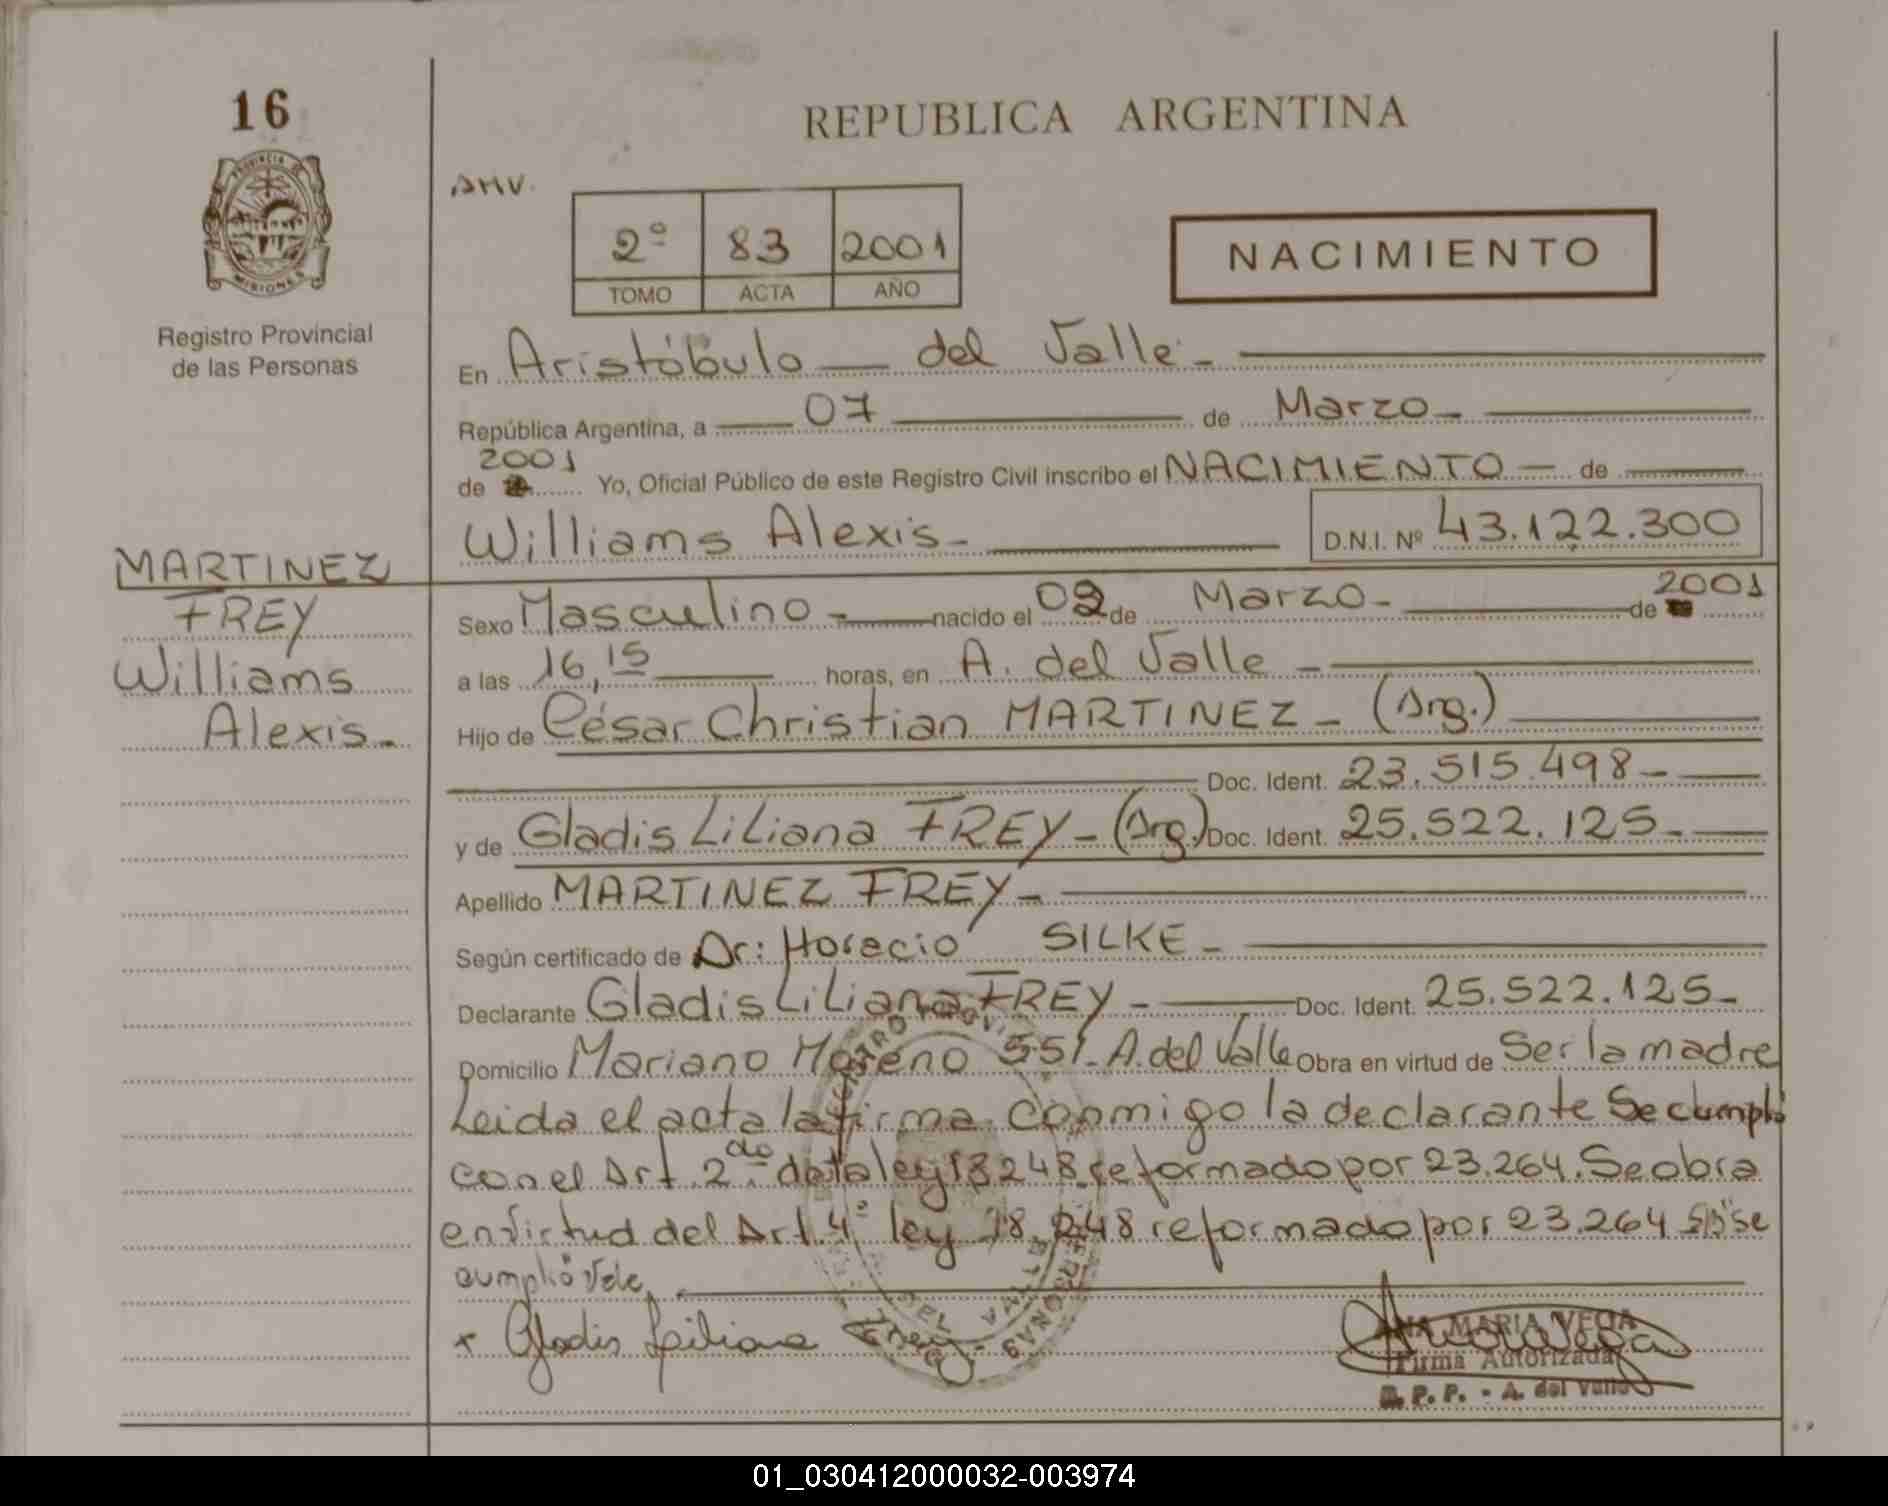 16
PROVINCIA DE
MISIONES
Registro Provincial
de las Personas
REPUBLICA ARGENTINA
AMV.
2º 83 2001
TOMO ACTA AÑO
NACIMIENTO
En Aristóbulo — del Valle -
República Argentina, a 07 de Marzo -
2001
de Yo, Oficial Público de este Registro Civil inscribo el NACIMIENTO — de
Williams Alexis - D.N.I. Nº 43.122.300
MARTINEZ
FREY
Williams
Alexis -
Sexo Masculino - nacido el 02 de Marzo - de 2001
a las 16,15 horas, en A. del Valle -
Hijo de César Christian MARTINEZ - (Arg.)
Doc. Ident. 23.515.498 -
y de Gladis Liliana FREY - (Arg.) Doc. Ident. 25.522.125 -
Apellido MARTINEZ FREY -
Según certificado de Dr: Horacio SILKE -
Declarante Gladis Liliana FREY - Doc. Ident. 25.522.125 -
Domicilio Mariano Moreno 551 - A. del Valle Obra en virtud de Ser la madre
Leida el acta la firma conmigo la declarante Se cumpló
con el Art. 2do. de la ley 18248 reformado por 23.264. Se obra
en virtud del Art. 4º ley 18.248 reformado por 23.264 "se
cumplió Vale
x Gladis Liliana Frey
ANA MARIA VEGA
Firma Autorizada
R. P. P. - A. del Valle
01_030412000032-003974